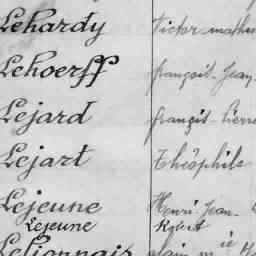 Lehardy Victor mathu
Lehoerff françois-Jean
Lejard françis-Pierre
Lejart Théophile
Lejeune Henri-Jean-
Lejeune Robert
Lelionnais alain m ie